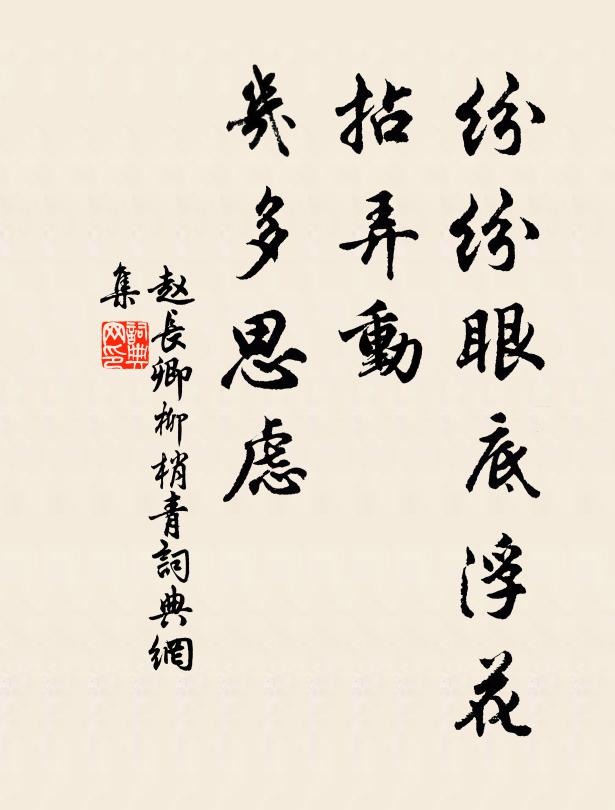 纷纷眼底浮花
拈弄動
幾多思慮
赵長卿柳梢青詞典網
集
詞典
网印